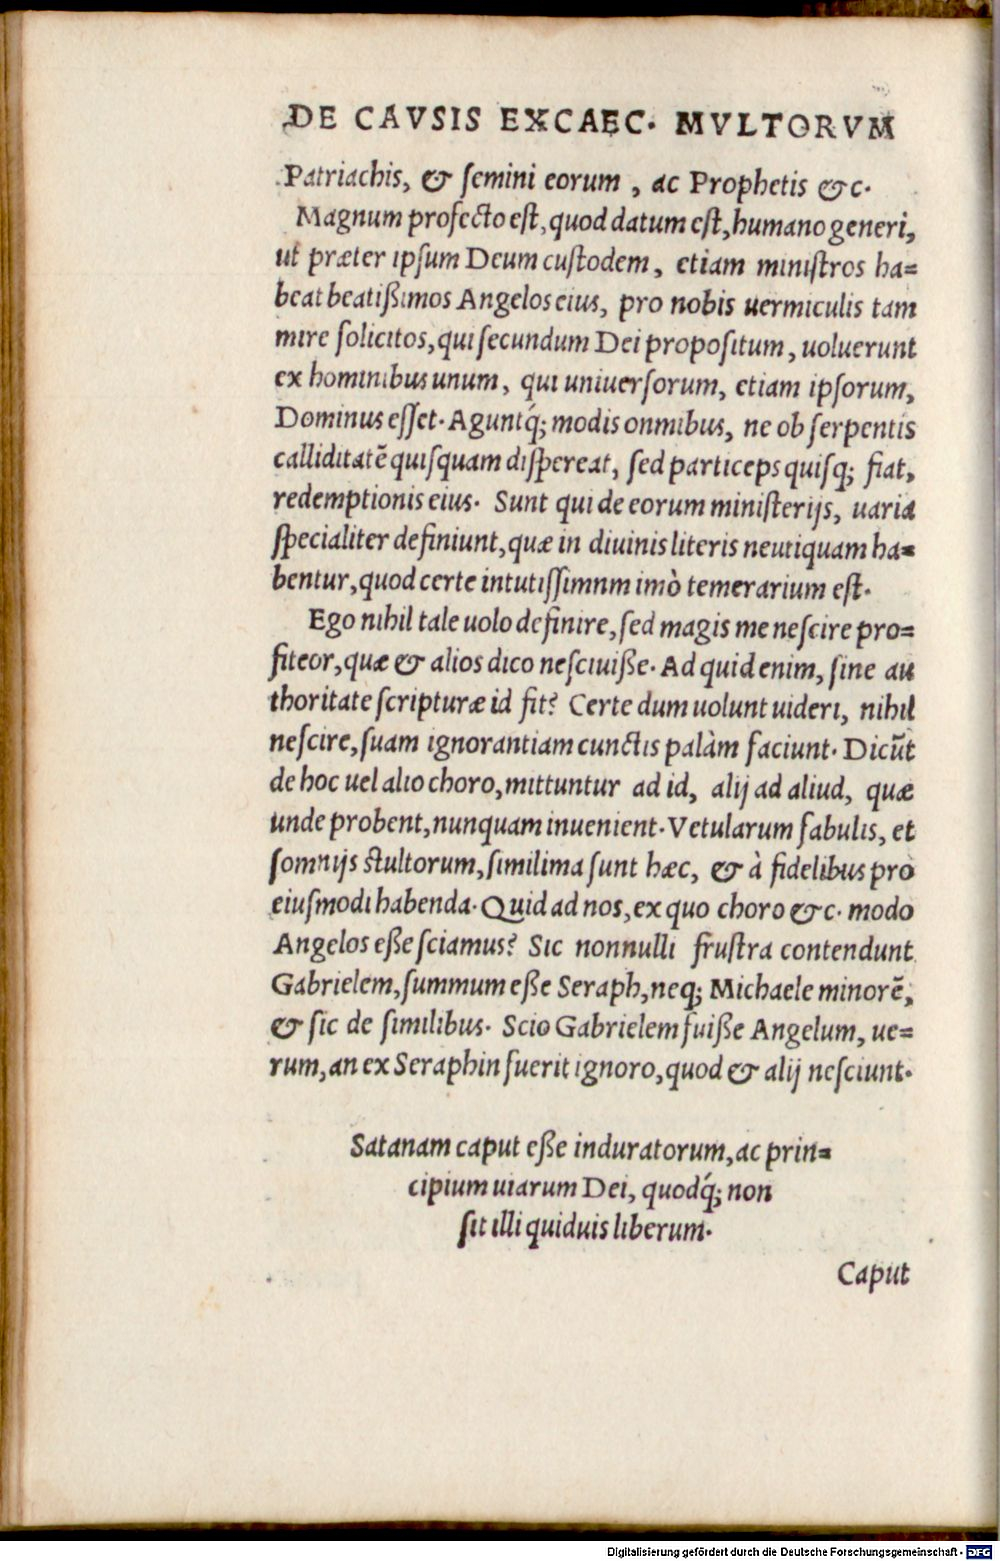 DE CAVSIS EXCAEC. MVLTORVM
Patriachis, & semini eorum , ac Prophetis &c.
Magnum profecto est, quod datum est, humano generi,
ut præter ipsum Deum custodem, etiam ministros ha=
beat beatißimos Angelos eius, pro nobis uermiculis tam
mire solicitos, qui secundum Dei propositum, uoluerunt
ex hominibus unum, qui uniuersorum, etiam ipsorum,
Dominus esset. Aguntq́; modis onmibus, ne ob serpentis
calliditatẽ quisquam dispereat, sed particeps quisq; fiat,
redemptionis eius. Sunt qui de eorum ministerijs, uaria
specialiter definiunt, quæ in diuinis literis neutiquam ha=
bentur, quod certe intutissimnm imò temerarium est.
Ego nihil tale uolo definire, sed magis me nescire pro=
fiteor, quæ & alios dico nesciuiße. Ad quid enim, sine au
thoritate scripturæ id fit? Certe dum uolunt uideri, nihil
nescire, suam ignorantiam cunctis palàm faciunt. Dicũt
de hoc uel alio choro, mittuntur ad id, alij ad aliud, quæ
unde probent, nunquam inuenient. Vetularum fabulis, et
somnijs stultorum, similima sunt hæc, & à fidelibus pro
eiusmodi habenda. Quid ad nos, ex quo choro &c. modo
Angelos eße sciamus? Sic nonnulli frustra contendunt
Gabrielem, summum eße Seraph, neq; Michaele minorẽ,
& sic de similibus. Scio Gabrielem fuiße Angelum, ue=
rum, an ex Seraphin fuerit ignoro, quod & alij nesciunt.
Satanam caput eße induratorum, ac prin=
cipium uiarum Dei, quodq́; non
sit illi quiduis liberum.
Caput
Digitalisierung gefördert durch die Deutsche Forschungsgemeinschaft - DFG